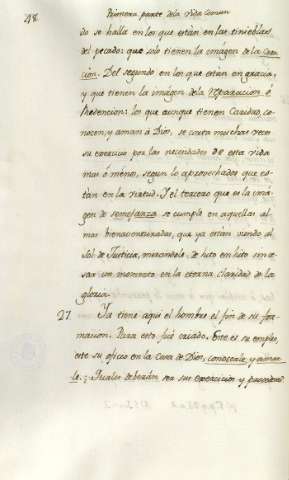 48.
Primera parte de la Vida Comun
do se halla en los que están en las tinieblas
del pecado: que solo tienen la imagen de la Crea
cion. Del segundo en los que están en gracia,
y que tienen la imágen de la reparacion, ó
Redencion: los que aunque tienen Caridad, co-
nocen, y aman à Dios, se corta muchas veces
su exercicio por las necesidades de esta vida
mas ó menos, segun lo aprovechados que es-
tán en la virtud. Y el tercero que es la imá-
gen de semejanza se cumple en aquellas al-
mas bienaventuradas, que ya estan viendo al
Sol de Justicia, mirandole de hito en hito sin ce-
sar un momento en la eterna claridad de la
gloria.
27. Ya tiene aqui el hombre el fin de su for-
macion. Para esto fué criado. Este es su empleo,
este su oficio en la Casa de Dios, conocerle, y amar-
le. ¿Quales deberán ser sus